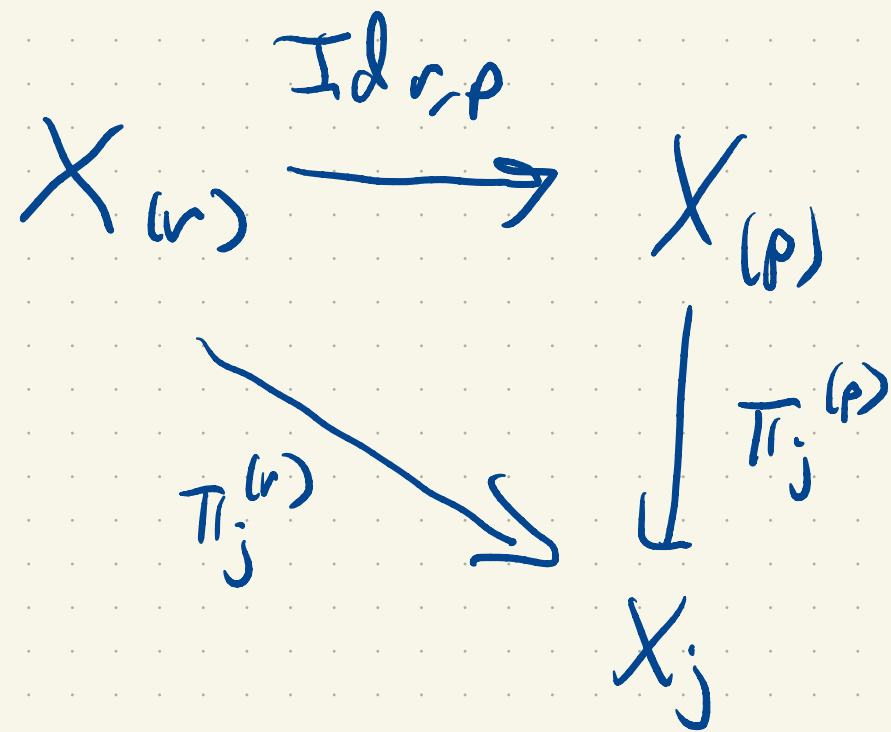 Id r,p
X (r) X (p)
π j (r) π j (p)
X j